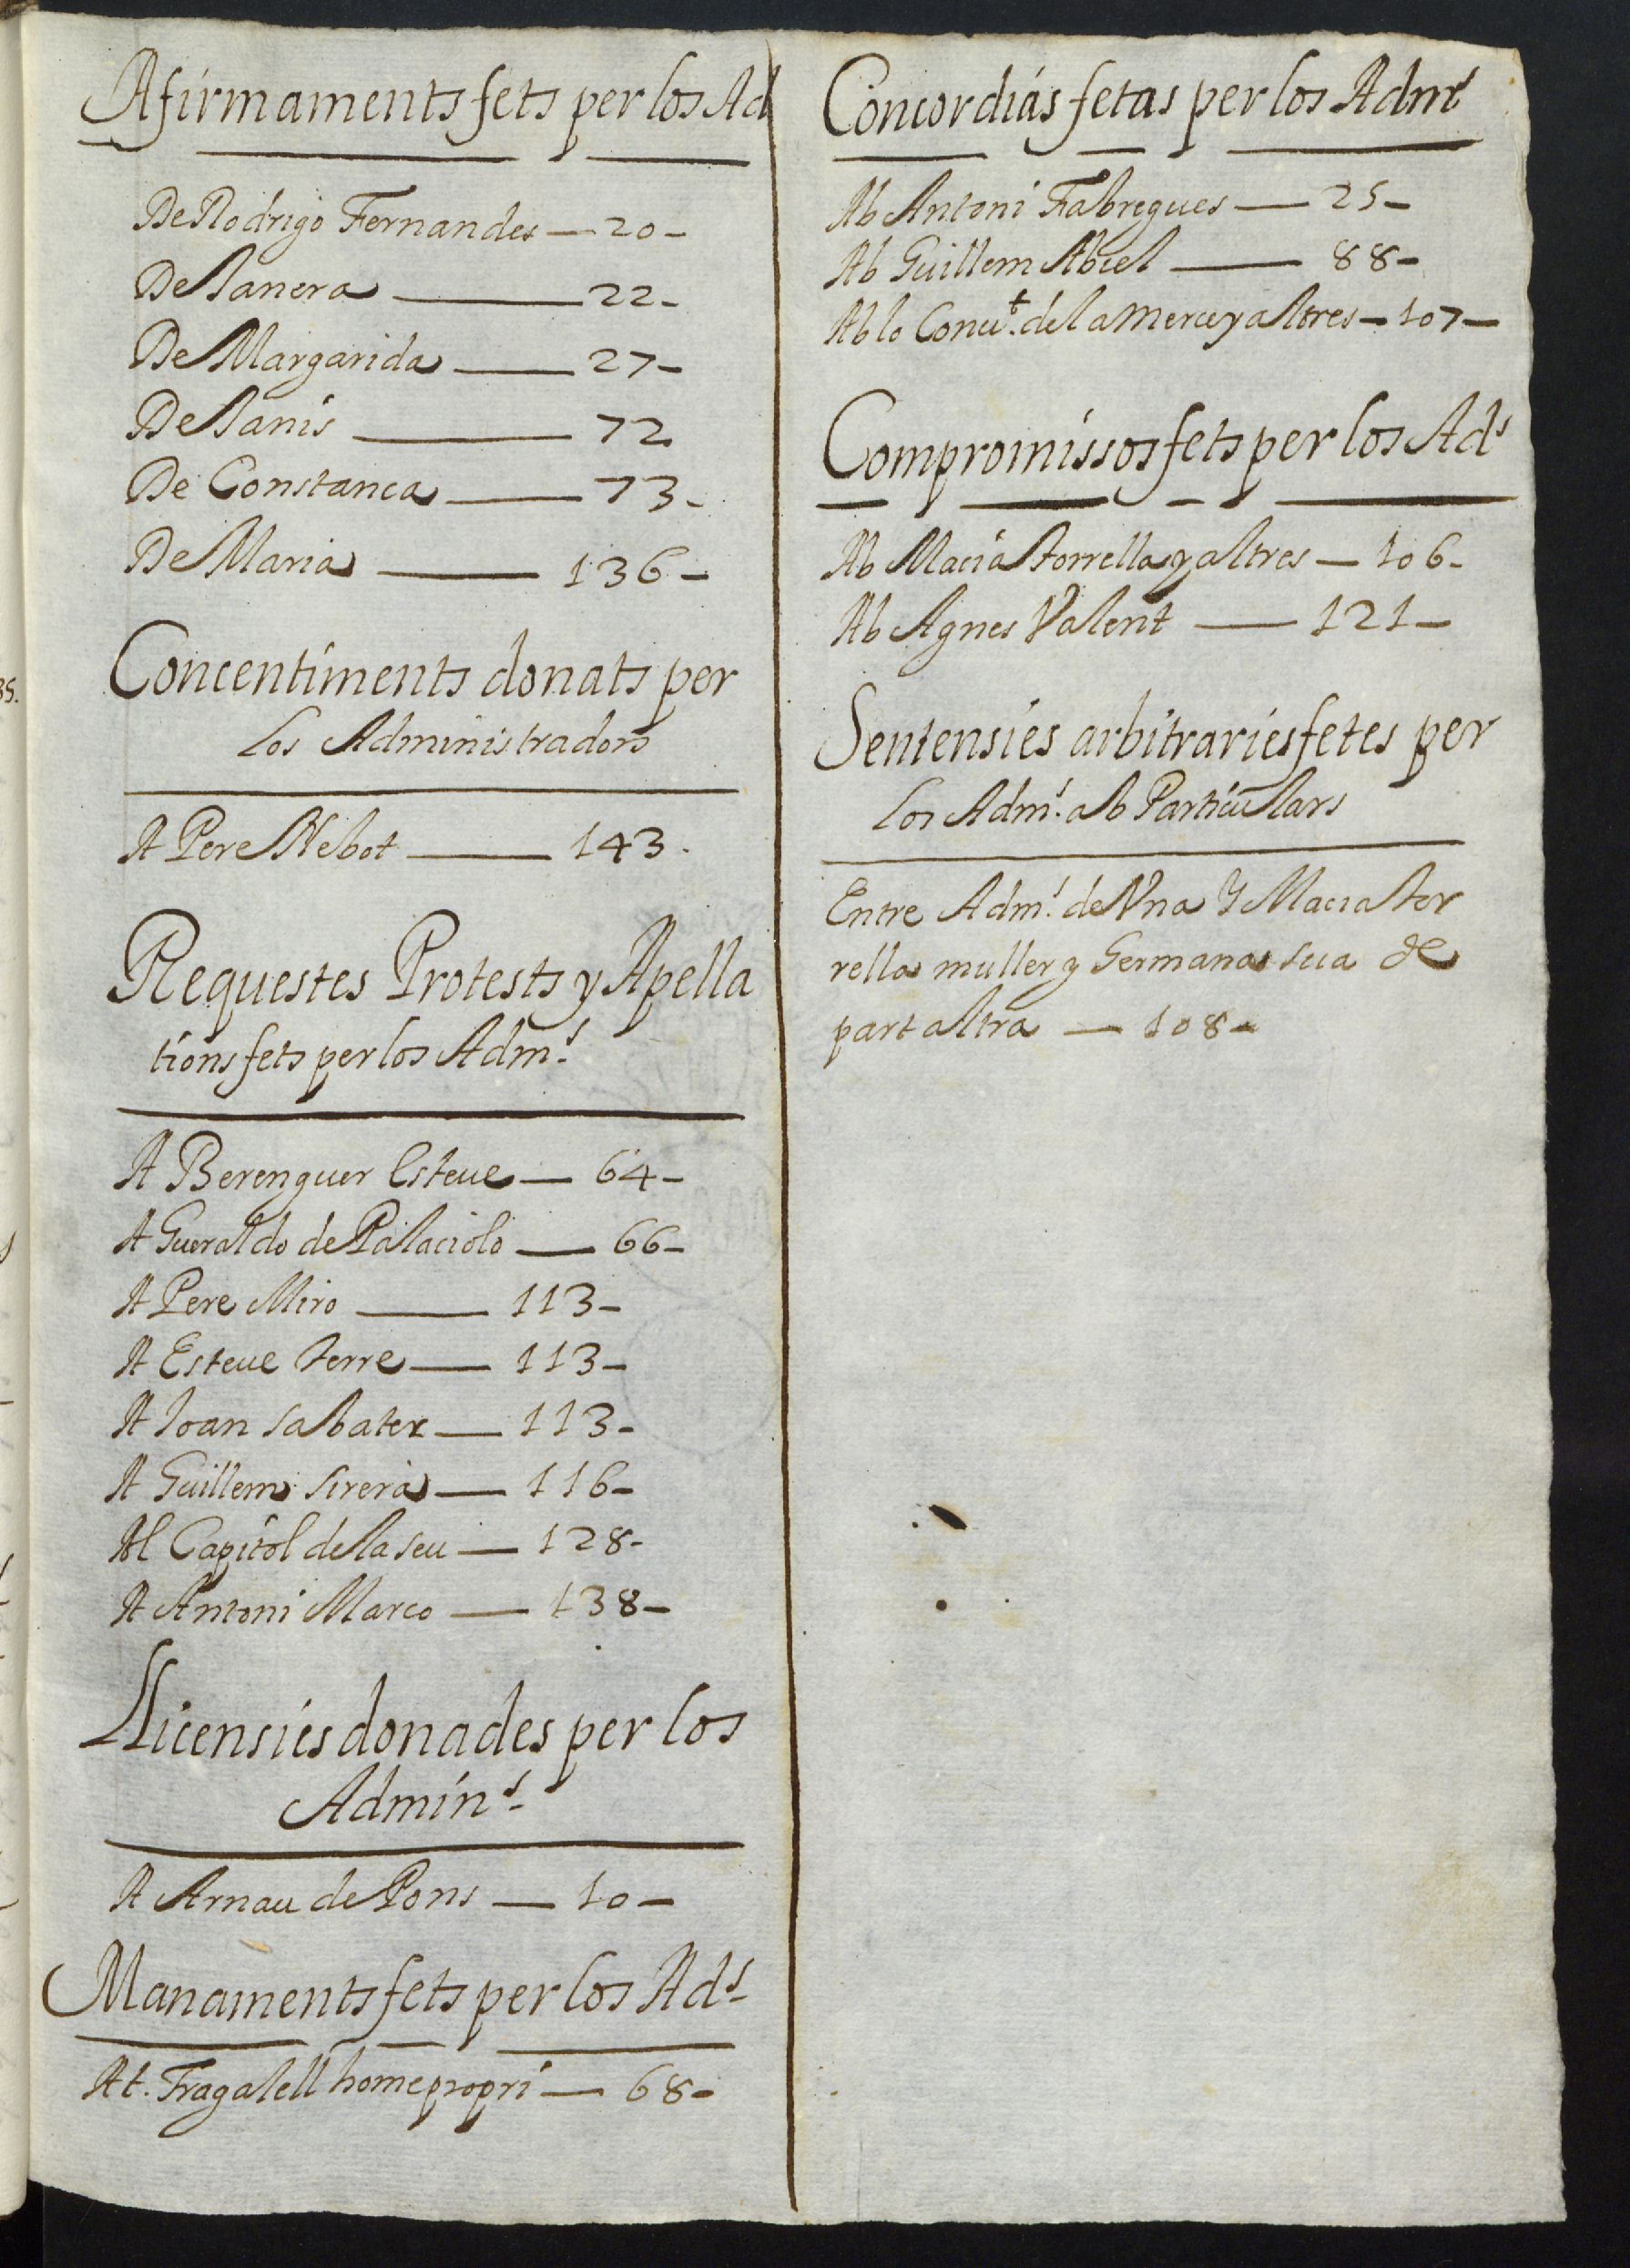 Afirmaments fets per los Ad
De Rodrigo Fernandes — 20 -
De Janera — 22 -
De Margarida — 27 -
De Janis — 72
De Constanca — 73 -
De Maria — 136 -
Concentiments donats per
los Administradors
A Pere Nebot — 143.
Requestes Protests y Apella
tions fets per los Adm.s
A Berenguer Esteve — 64 -
A Gueraldo de Palaciolo — 66 -
A Pere Miro — 113 -
A Esteue terre — 113 -
A Joan Sabater — 113 -
A Guillem Sirera — 116 -
Al Capitol de la seu — 128 -
A Antoni Marco — 138 -
Llicensies donades per los
Admin.s
A Arnau de Pons — 10 -
Manaments fets per los Ad.s
At. Fragalell home propri — 68 -
Concordias fetas per los Adm.s
Ab Antoni Fabregues — 25 -
Ab Guillem Abiel — 88 -
Ab lo Conu.t de la Merce y altres — 107 -
Compromissos fets per los Ad.s
Ab Macia torrella y altres — 106 -
Ab Agnes Valent — 121 -
Sentensies arbitraries fetes per
los Adm.s ab Particulars
Entre Adm.s de Vna Y Macia tor
rella muller y Germana sua de
part altra — 108 -